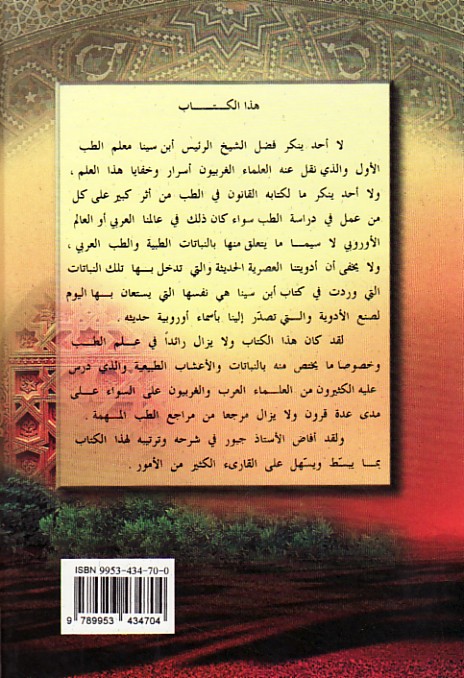 هذا الكتـــــاب
لا أحد ينكر فضل الشيخ الرئيس أبن سينا معلم الطب
الأول والذي نقل عنه العلماء الغربيون أسرار وخفايا هذا العلم ،
ولا أحد ينكر ما لكتابه القانون في الطب من أثر كبير على كل
من عمل في دراسة الطب سواء كان ذلك في عالمنا العربي أو العالم
الأوروبي لا سيمـا ما يتعلق منها بالنباتات الطبية والطب العربي ،
ولا يخفى أن أدويتنا العصرية الحديثة والتي تدخل بـها تلك النباتات
التي وردت في كتاب أبن سينا هي نفسها التي يستعان بـها اليوم
لصنع الأدوية والـتي تصدّر إلينا بأسماء أوروبية حديثه .
لقد كان هذا الكتاب ولا يزال رائداً في علـم الطب
وخصوصا ما يختص منه بالنباتات والأعشاب الطبيعية والذي درس
عليه الكثيرون من العلمـاء العرب والغربيون على السواء علـى
مدى عدة قرون ولا يزال مرجعا من مراجع الطب المـهمة .
ولقد أفاض الأستاذ جبور في شرحه وترتيبه لهذا الكتاب
بمـا يبسّط ويسهل على القارىء الكثير من الأمور .
ISBN 9953-434-70-0
9 789953 434704